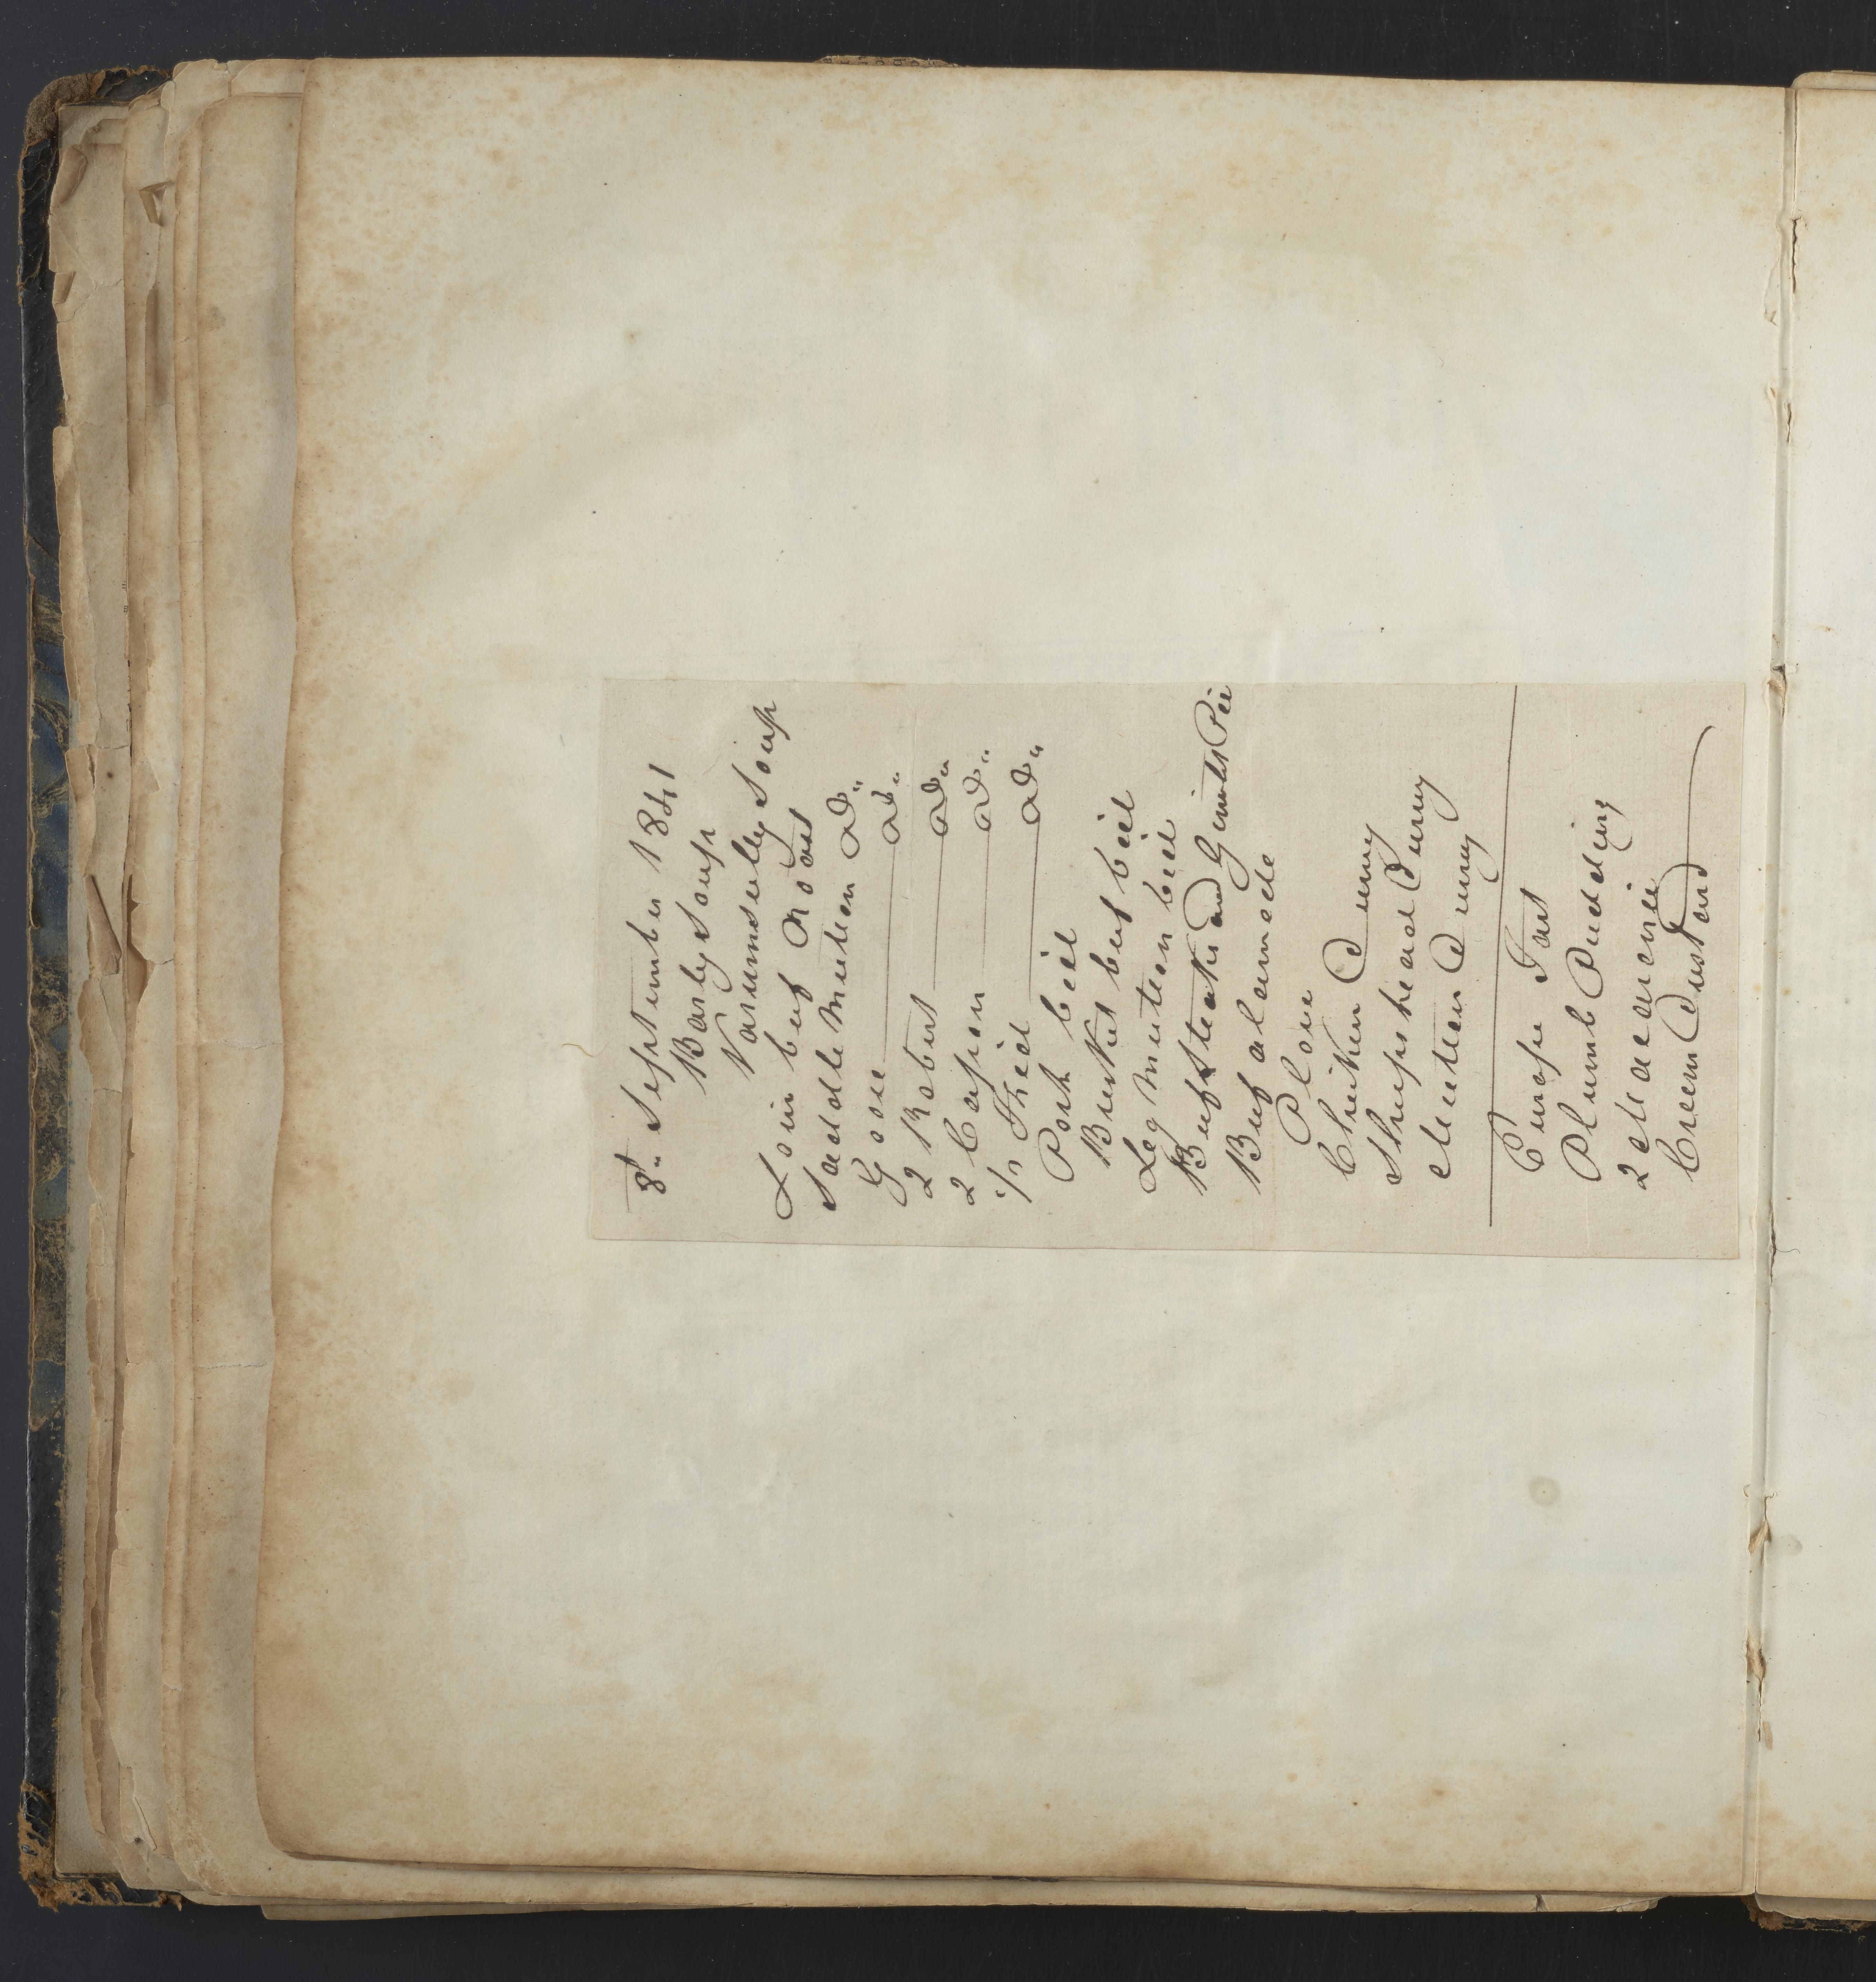 8th September 1841
Barly Soup
Varumsely Soup
Loin beef Roast
Saddle Mutton Do
Goose Do
2 Robert Do
2 Capon Do
Do
Pork boil
Brisket beef boil
Leg Mutton boil
Beef Steaks and Gimlets Pie
Beef alamode
Plove
Chiken Curry
Sheeps head Curry
Mutten Curry
Europe Tart
Plumb Pudding
2 Macaronie
Creem Custard